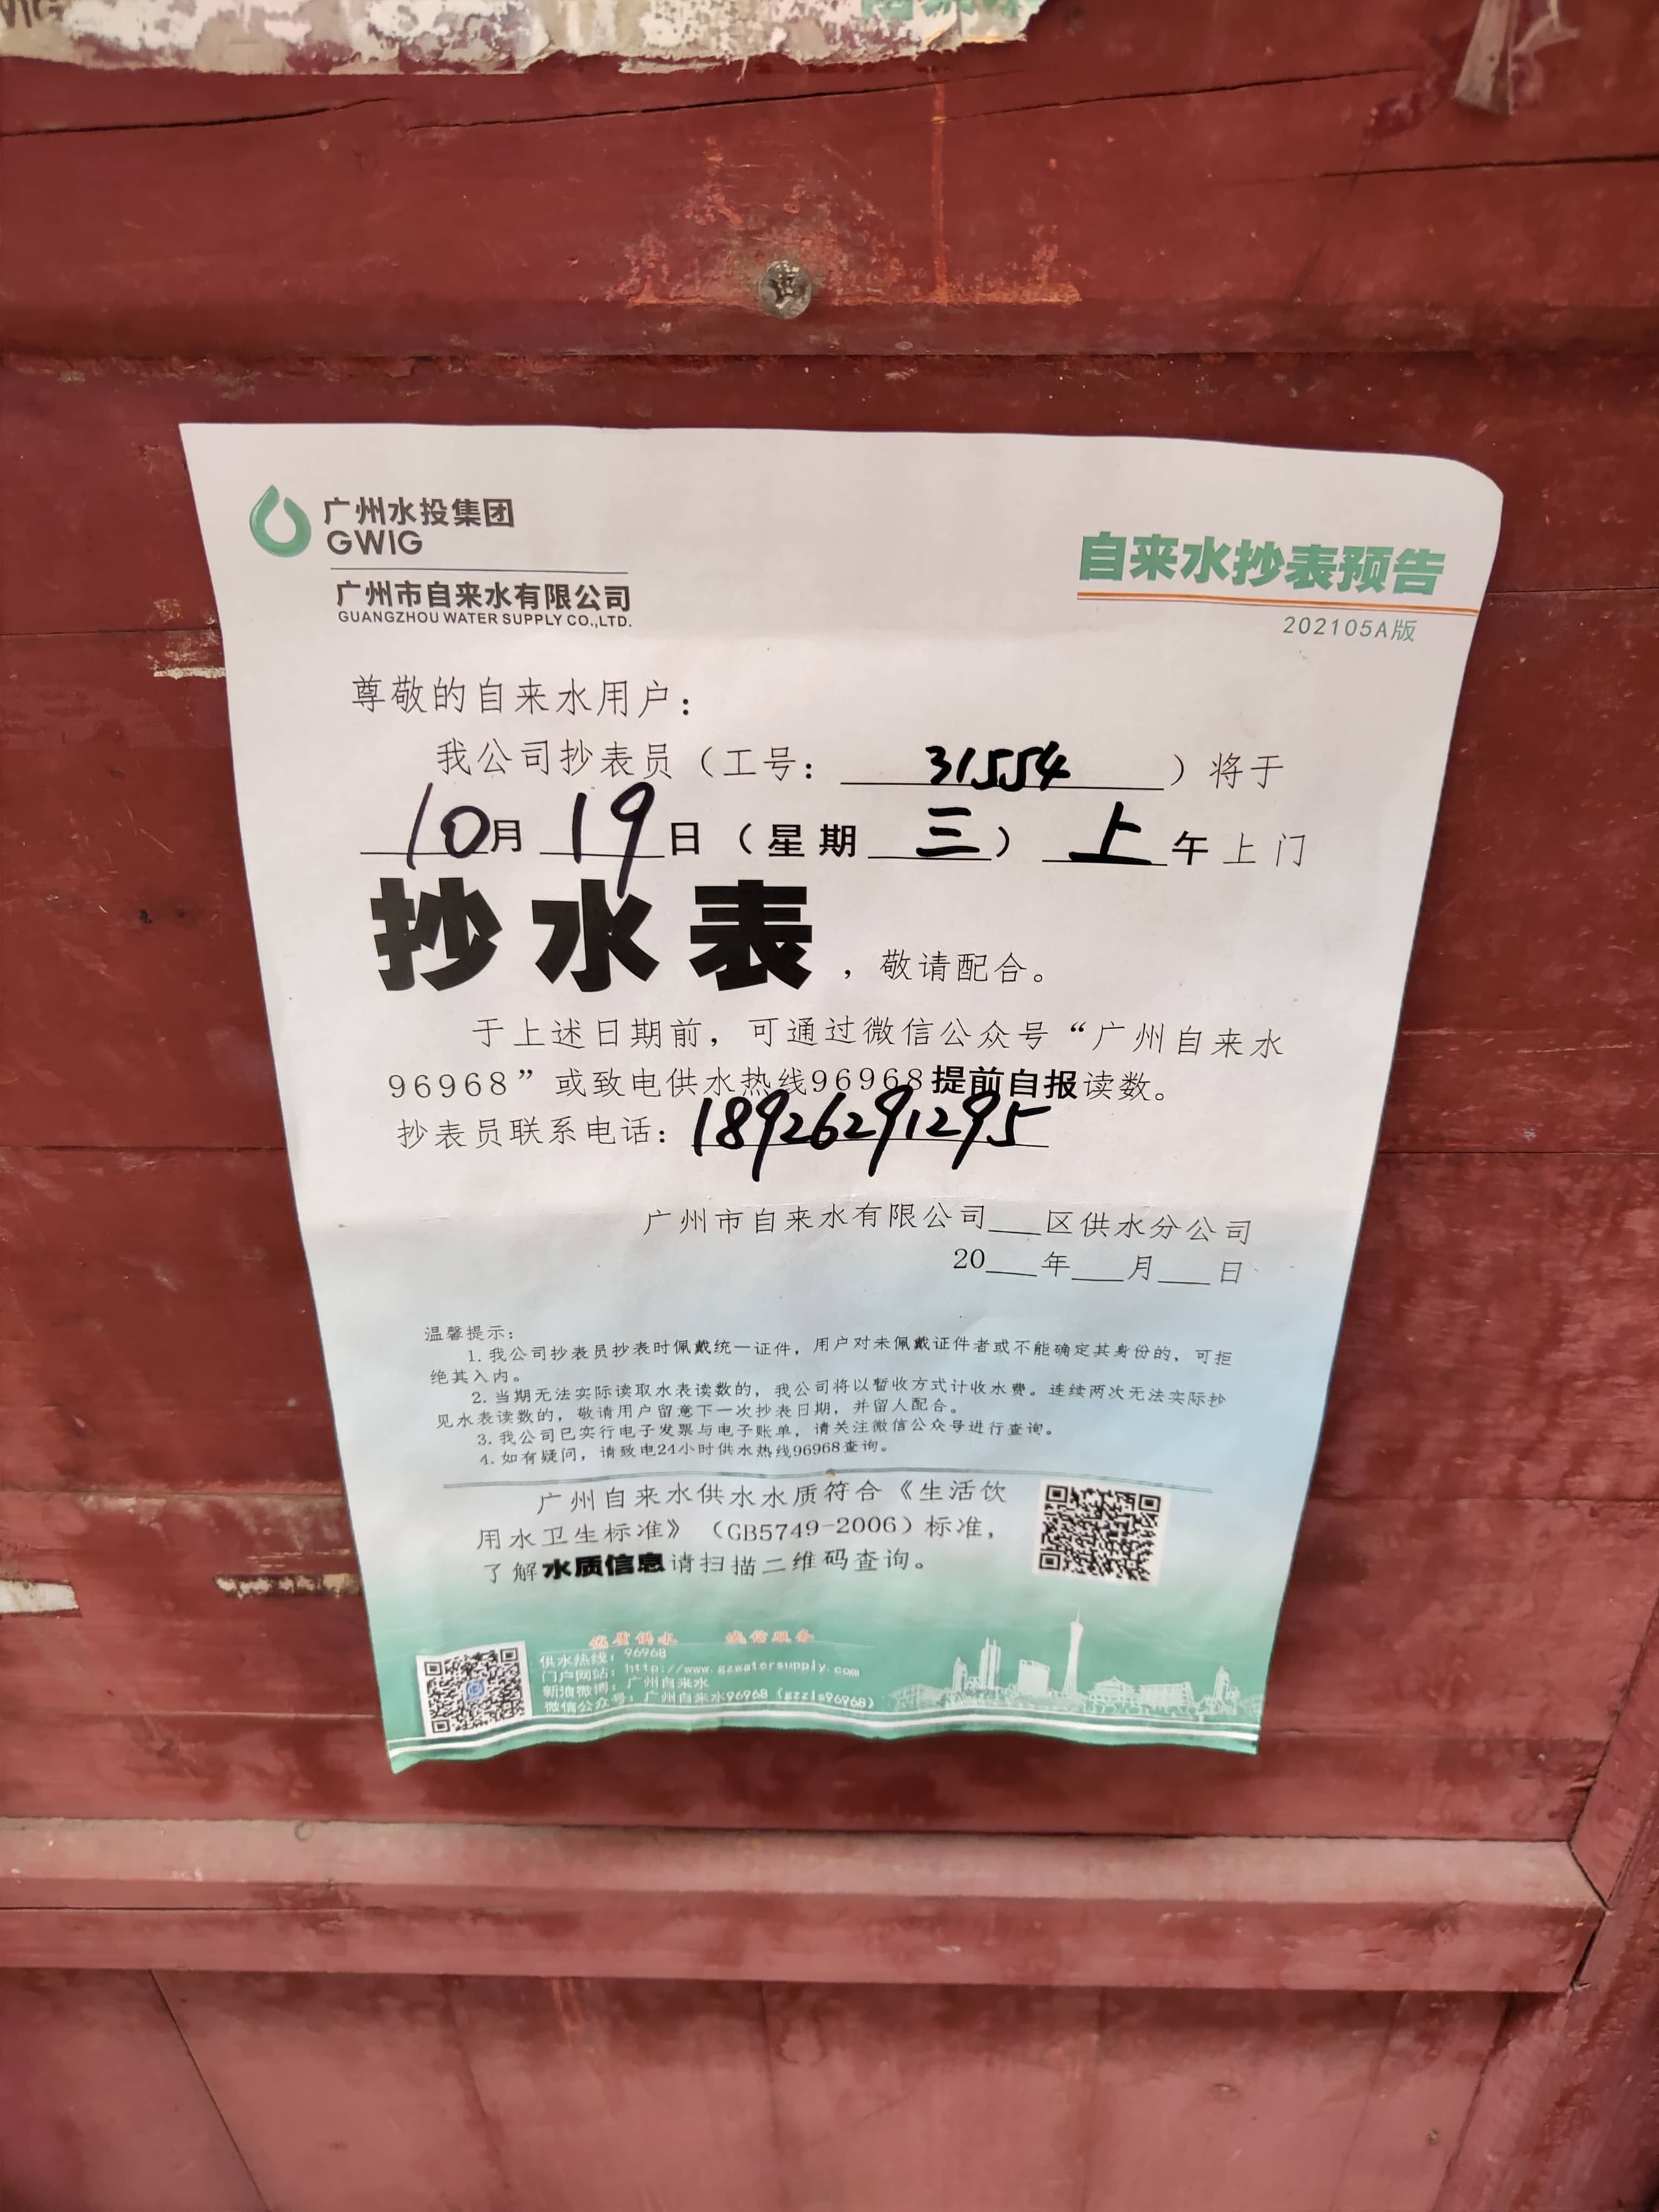 广州水投集团
GWIG
广州市自来水有限公司
GUANGZHOU WATER SUPPLY CO.,LTD.
自来水抄表预告
202105A版
尊敬的自来水用户：
我公司抄表员（工号：31554）将于
10月19日（星期三）上午上门
抄水表，敬请配合。
于上述日期前，可通过微信公众号“广州自来水
96968”或致电供水热线96968提前自报读数。
抄表员联系电话：18926291295
广州市自来水有限公司___区供水分公司
20___年___月___日
温馨提示：
1. 我公司抄表员抄表时佩戴统一证件，用户对未佩戴证件者或不能确定其身份的，可拒
绝其入内。
2. 当期无法实际读取水表读数的，我公司将以暂收方式计收水费。连续两次无法实际抄
见水表读数的，敬请用户留意下一次抄表日期，并留人配合。
3. 我公司已实行电子发票与电子账单，请关注微信公众号进行查询。
4. 如有疑问，请致电24小时供水热线96968查询。
广州自来水供水水质符合《生活饮
用水卫生标准》（GB5749-2006）标准，
了解水质信息请扫描二维码查询。
优质供水 诚信服务
供水热线：96968
门户网站：http://www.gzwatersupply.com
新浪微博：广州自来水
微信公众号：广州自来水96968（gzzls96968）